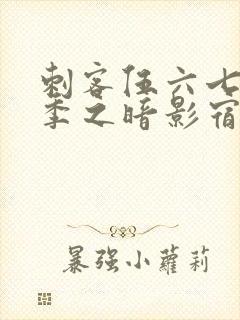 刺客伍六七
季之暗影宿
暴强小萝莉